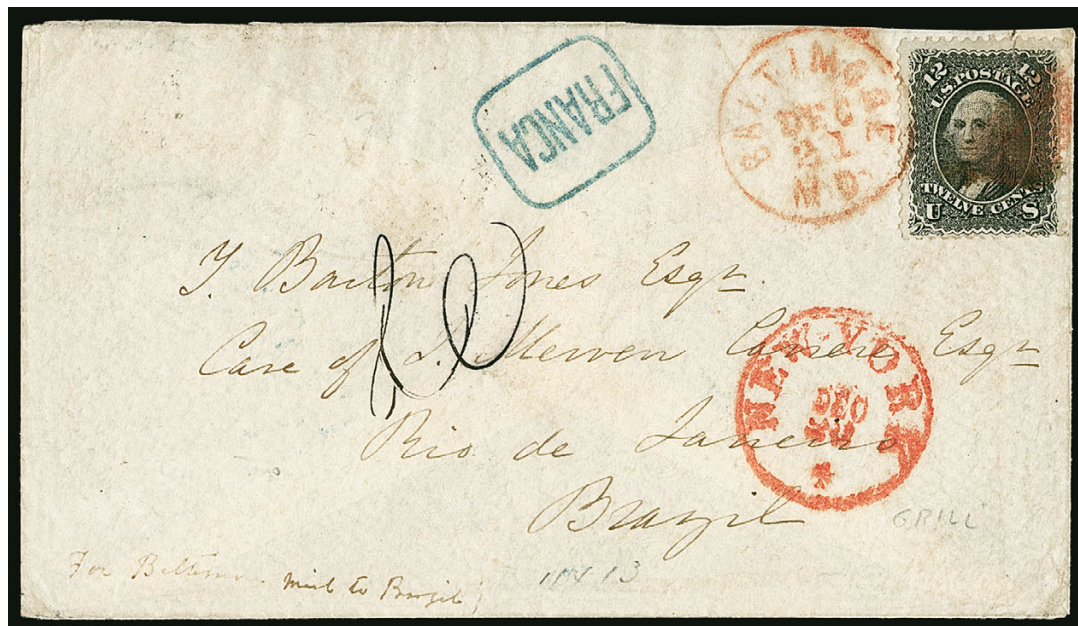 FRANCA
BALTIMORE
DEC
21
MD.
12 12
U.S. POSTAGE
TWELVE CENTS
U S
J. Barton Jones Esqr.
Care of J. Merven Carrere Esqr
Rio de Janeiro
Brazil
NEW-YORK
DEC
GRILL
For Baltimore mail to Brazil
11 x 13